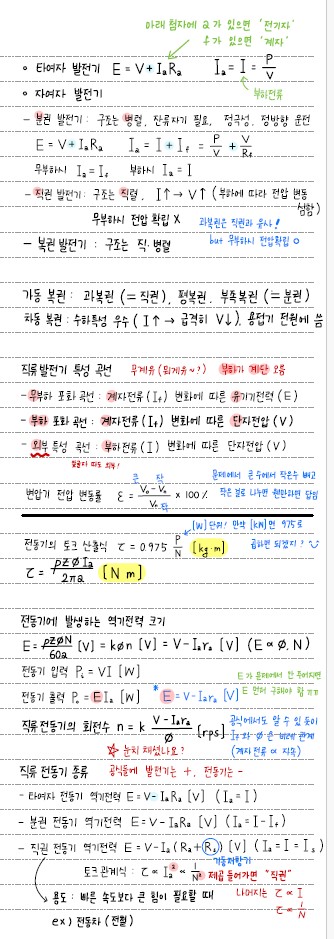 아래 첨자에 a 가 있으면 '전기자'
f 가 있으면 '계자'
○ 타여자 발전기 E = V + IaRa Ia = I = P/V
부하전류
○ 자여자 발전기
- 분권 발전기 : 구조는 병렬, 잔류자기 필요, 정극성, 정방향 운전
E = V + IaRa Ia = I + If = P/V + V/Rf
무부하시 Ia = If 부하시 Ia = I
- 직권 발전기 : 구조는 직렬, I↑ → V↑ (부하에 따라 전압 변동 심함)
무부하시 전압 확립 X
과복권은 직권과 유사!
but 무부하시 전압확립 o
- 복권 발전기 : 구조는 직·병렬
가동 복권 : 과복권 (= 직권), 평복권, 부족복권 (= 분권)
차동 복권 : 수하특성 우수 (I↑ → 급격히 V↓), 용접기 전원에 씀
직류발전기 특성 곡선 무계유 (뭐게유~?) 부하가 계단 오름
- 무부하 포화 곡선 : 계자전류 (If) 변화에 따른 유기기전력 (E)
- 부하 포화 곡선 : 계자전류 (If) 변화에 따른 단자전압 (V)
- 외부 특성 곡선 : 부하전류 (I) 변화에 따른 단자전압 (V)
변압기 전압 변동률 ε = (Vo - Vn)/Vn × 100 %
큰 작
작
문제에서 큰 수에서 작은수 빼고
작은 걸로 나누면 웬만하면 답임
[W] 단위! 만약 [kW]면 975로
곱하면 되겠지?
전동기의 토크 산출식 τ = 0.975 P/N [kg·m]
τ = pZØIa/2πa [N m]
전동기에 발생하는 역기전력 크기
E = pZØN/60a [V] = kØn [V] = V - Iara [V] (E ∝ Ø, N)
전동기 입력 Pi = VI [W]
E 가 문제에서 안 주어지면
E 먼저 구해야 함
전동기 출력 Po = EIa [W] * E = V - Iara [V]
직류전동기의 회전수 n = k (V - Iara)/Ø [rps]
공식에서도 알 수 있듯이
Ia와 Ø은 비례 관계
(계자전류 ∝ 자속)
☆ 눈치 채셨나요?
직류 전동기 종류 공식들에 발전기는 +, 전동기는 -
- 타여자 전동기 역기전력 E = V - IaRa [V] (Ia = I)
- 분권 전동기 역기전력 E = V - IaRa [V] (Ia = I - If)
- 직권 전동기 역기전력 E = V - Ia(Ra + Rs) [V] (Ia = I = Is)
기동저항기
토크관계식 : τ ∝ Ia² ∝ 1/N² 제곱 들어가면 "직권"
나머지는 τ ∝ I
τ ∝ 1/N
용도 : 빠른 속도보다 큰 힘이 필요할 때
ex) 전동차 (전철)